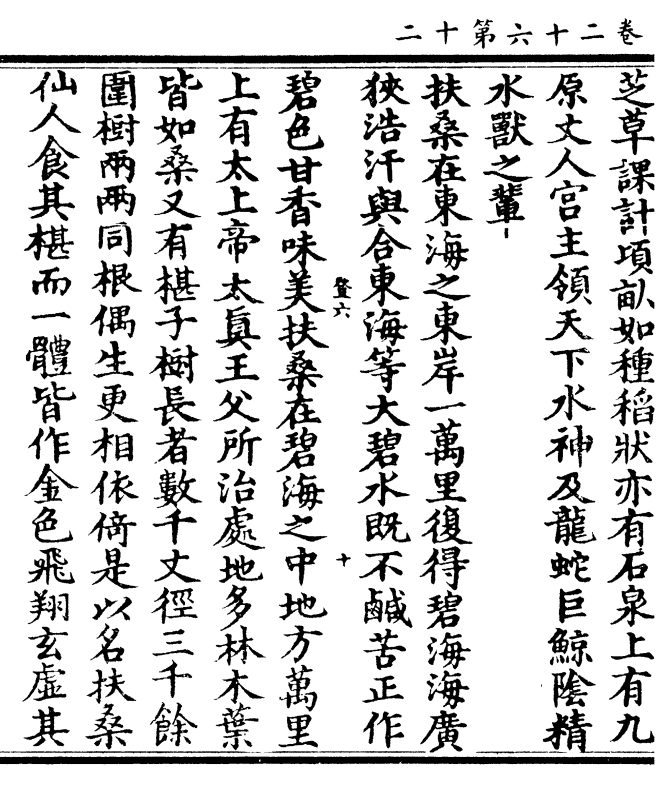 卷二十六第十二
芝草課計頃畝如種稻狀亦有石泉上有九
原丈人宮主領天下水神及龍蛇巨鯨陰精
水獸之輩
扶桑在東海之東岸一萬里復得碧海海廣
狹浩汗與合東海等大碧水既不鹹苦正作
登六
十
碧色甘香味美扶桑在碧海之中地方萬里
上有太上帝太真王父所治處地多林木葉
皆如桑又有椹子樹長者數千丈徑三千餘
圍樹兩兩同根偶生更相依倚是以名扶桑
仙人食其椹而一體皆作金色飛翔玄虛其